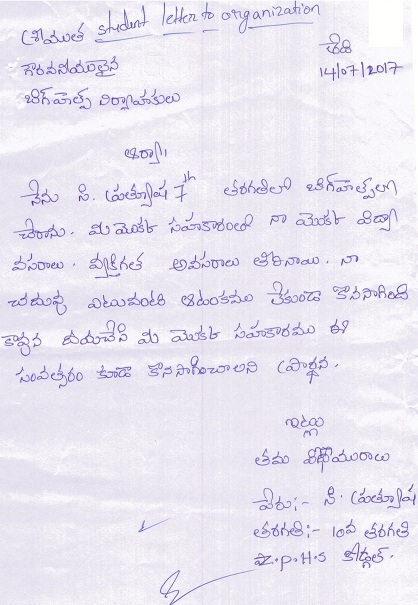 శ్రీయుత student letter to organization
తేది
గౌరవనీయులైన
14/07/2017
బిగ్‌హెల్ప్ నిర్వాహకులు
ఆర్యా,
నేను సి. ప్రత్యూష 7th తరగతిలో బిగ్‌హెల్ప్‌లో
చేరాను. మీ యొక్క సహకారంతో నా యొక్క విద్యా
వసరాలు. వ్యక్తిగత అవసరాలు తీరినాయి. నా
చదువు ఎటువంటి ఆటంకము లేకుండా కొనసాగింది
కావున దయచేసి మీ యొక్క సహకారము ఈ
సంవత్సరం కూడా కొనసాగించాలని ప్రార్థన.
ఇట్లు
తమ విధేయురాలు
పేరు:- సి. ప్రత్యూష
తరగతి:- 10వ తరగతి
Z.P.H.S